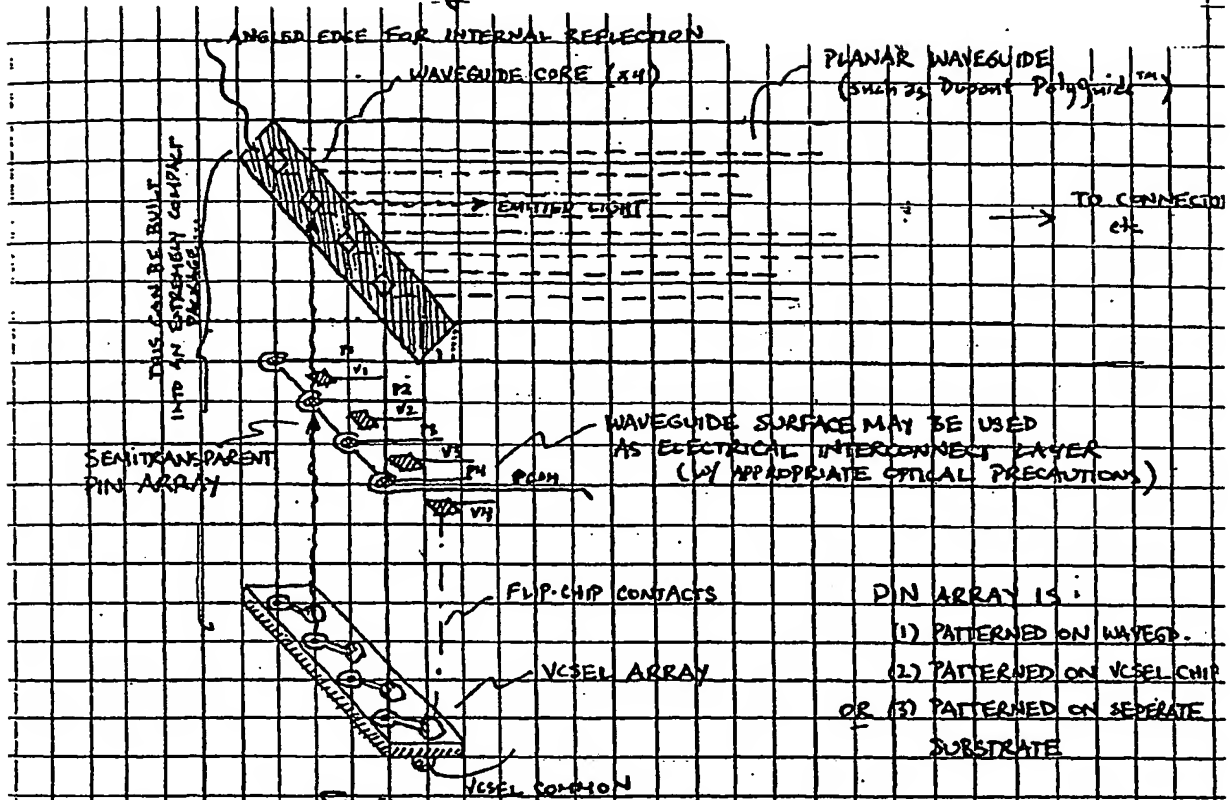 ANGLED EDGE FOR INTERNAL REFLECTION
WAVEGUIDE CORE (x4)
PLANAR WAVEGUIDE
(such as Dupont Polyguide™)
THIS CAN BE BUILT
INTO AN EXTREMELY COMPACT
PACKAGE
EMITTED LIGHT
TO CONNECTOR
etc
P1
V1
P2
V2
P3
V3
P4
PCOM
V4
SEMITRANSPARENT
PIN ARRAY
WAVEGUIDE SURFACE MAY BE USED
AS ELECTRICAL INTERCONNECT LAYER
(W/ APPROPRIATE OPTICAL PRECAUTIONS)
FLIP-CHIP CONTACTS
VCSEL ARRAY
VCSEL COMMON
PIN ARRAY IS:
(1) PATTERNED ON WAVEGD.
(2) PATTERNED ON VCSEL CHIP
OR (3) PATTERNED ON SEPERATE
SUBSTRATE